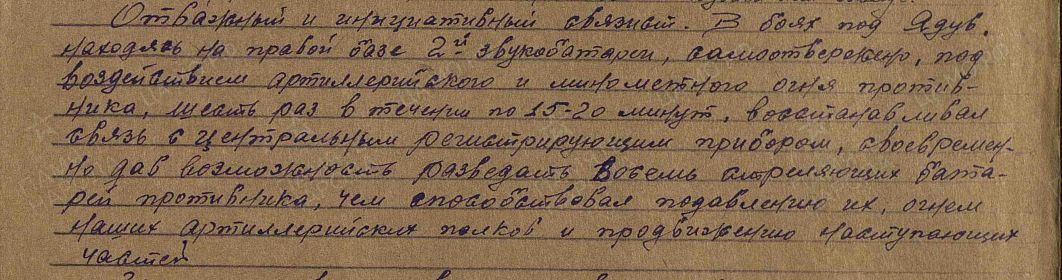 Отважный и инициативный связист. В боях под Адув,
находясь на правой базе 2й звукобатареи, самоотвержено, под
воздействием артиллерийского и минометного огня против-
ника, шесть раз в течении по 15-20 минут, восстанавливал
связь с центральным регистрирующим прибором, своевремен-
но дав возможность разведать восемь стреляющих бата-
рей противника, чем способствовал подавлению их, огнем
наших артиллерийских полков и продвижению наступающих
частей